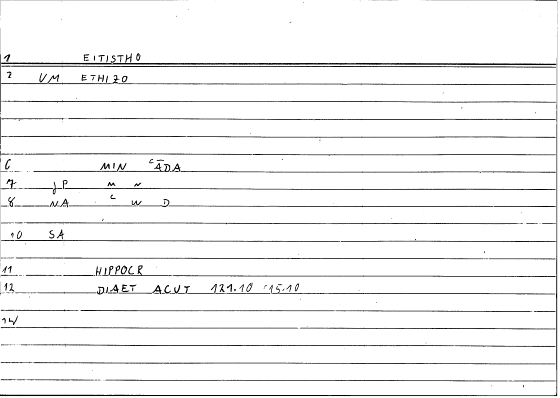 1 EITISTHO
2 VM ETHIZO
6 MIN CĀDA
7 JP M N
8 NA C W D
10 SA
11 HIPPOCR
12 DIAET ACUT 121.10 115.10
14